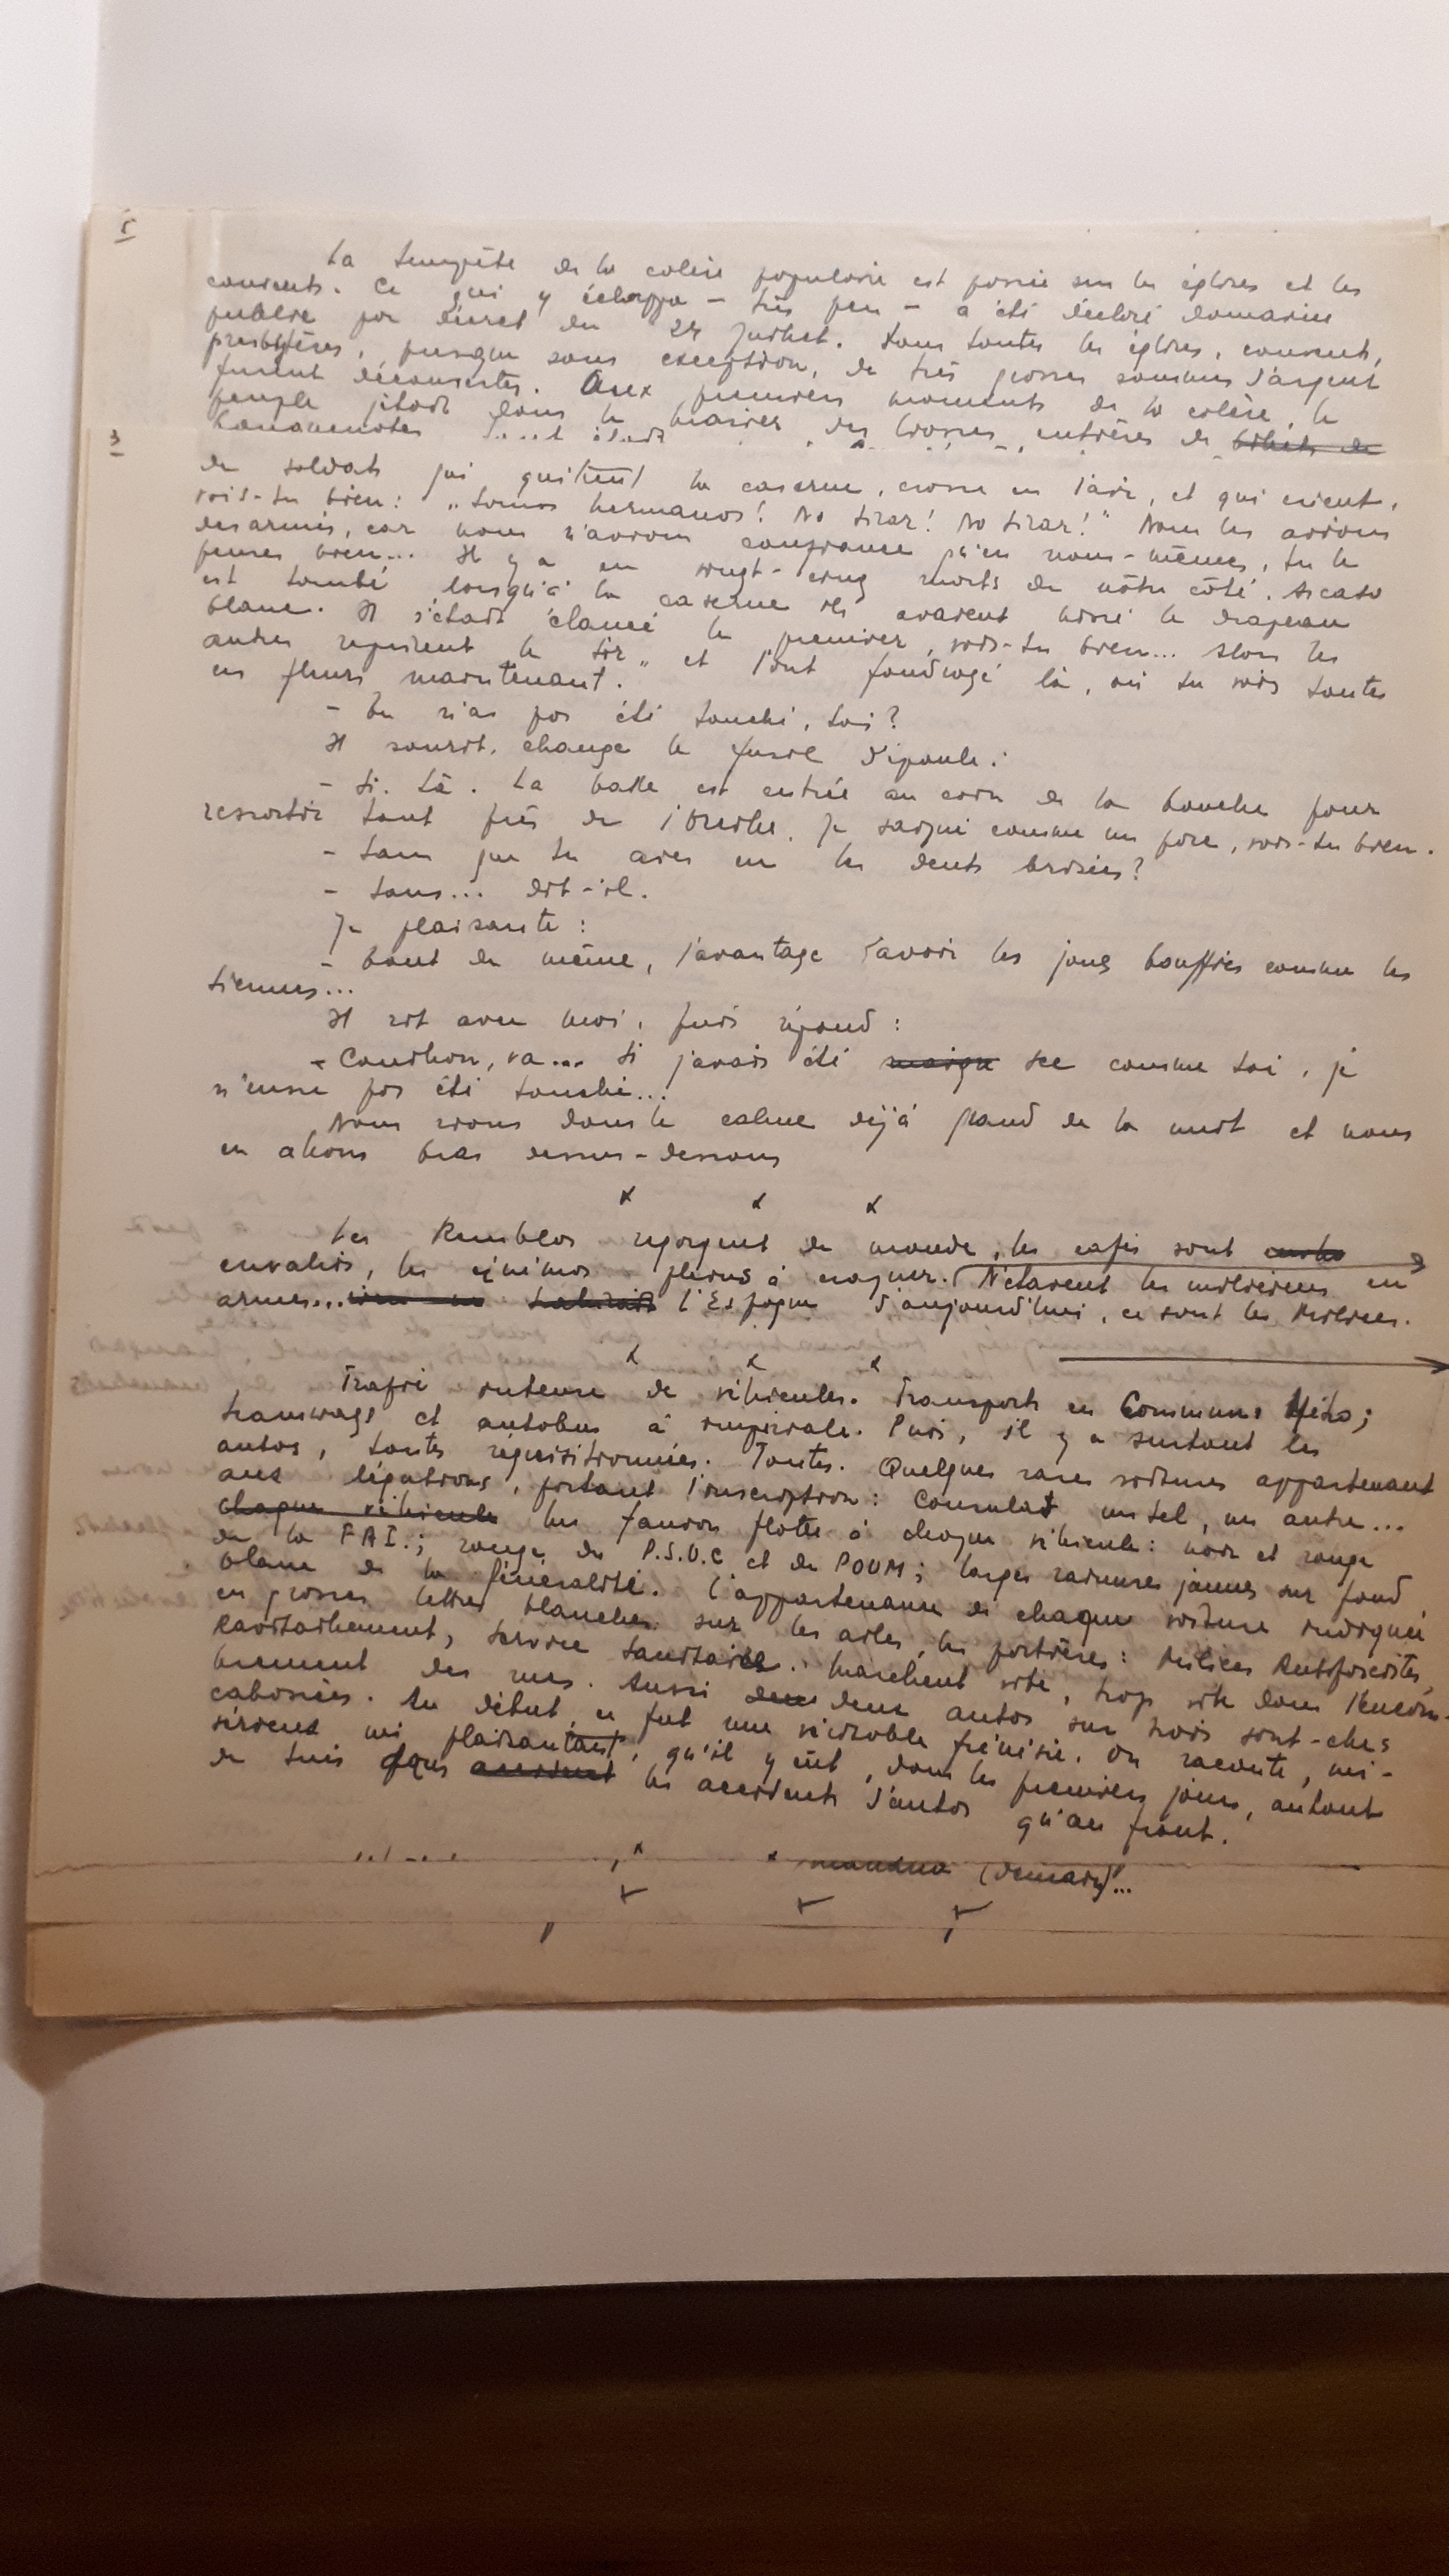 5
La tempête de la colère populaire est passée sur les églises et les
couvents. Ce qui y échappa — très peu — a été déclaré domaine
public par décret du 28 Juillet. Dans toutes les églises, couvents,
presbytères, presque sans exception, de très grosses sommes d'argent
furent découvertes. Aux premiers moments de la colère, le
peuple jetait dans le brasier des liasses entières de billets de
3
de soldats qui quittent la caserne, crosse en l'air, et qui crient,
vois-tu bien : "Somos hermanos! No tirar! No tirar!" Nous les avions
desarmés, car nous n'avions confiance qu'en nous-mêmes, tu le
penses bien... Il y a eu vingt-cinq morts de nôtre côté. Ascaso
est tombé lorsqu'à la caserne ils avaient hissé le drapeau
blanc. Il s'était élancé le premier, vois-tu bien... Alors les
autres reprirent le tir et l'ont foudroyé là, où tu vois toutes
ces fleurs maintenant.
- Tu n'as pas été touché, toi?
Il sourit, change le fusil d'épaule :
- Si. Là. La balle est entrée au coin de la bouche pour
ressortir tout près de l'oreille. Je saigné comme un porc, vois-tu bien.
- Sans que tu aies eu les dents brisées?
- Sans... dit-il.
Je plaisante :
- Tout de même, l'avantage d'avoir les joues bouffies comme les
tiennes...
Il rit avec moi, puis répond :
- Couillon, va... Si j'avais été maigre sec comme toi, je
n'eusse pas été touché...
Nous rions dans le calme déjà grand de la nuit et nous
en allons bras dessus-dessous
x x x
Les Ramblas regorgent de monde, les cafés sont
envahis, les cinémas pleins à craquer. N'étaient les miliciens en
armes... l'Espagne d'aujourd'hui, ce sont les Milices.
x x x
Trafic intense de véhicules. Transports en Commun : Métro;
tramways et autobus à impériale. Puis, il y a surtout les
autos, toutes réquisitionnées. Toutes. Quelques rares voitures appartenant
aux légations, portant l'inscription : Consulat un tel, un autre...
chaque véhicule Un fanion flotte à chaque véhicule : noir et rouge
de la FAI.; rouge du P.S.U.C et du POUM; larges rainures jaunes sur fond
blanc de la Généralité. L'appartenance de chaque voiture indiquée
en grosses lettres blanches sur les ailes, les portières : Milices Antifascistes,
Ravitaillement, Service Sanitaire. Marchent vite, trop vite dans l'encom-
brement des rues. Aussi deux autos sur trois sont-elles
cabossées. Au début, ce fut une véritable frénésie. On raconte, mi-
sérieux mi plaisantant, qu'il y eût, dans les premiers jours, autant
de tués dans accident les accidents d'autos qu'au front.
x x
(demain)"...
x x x